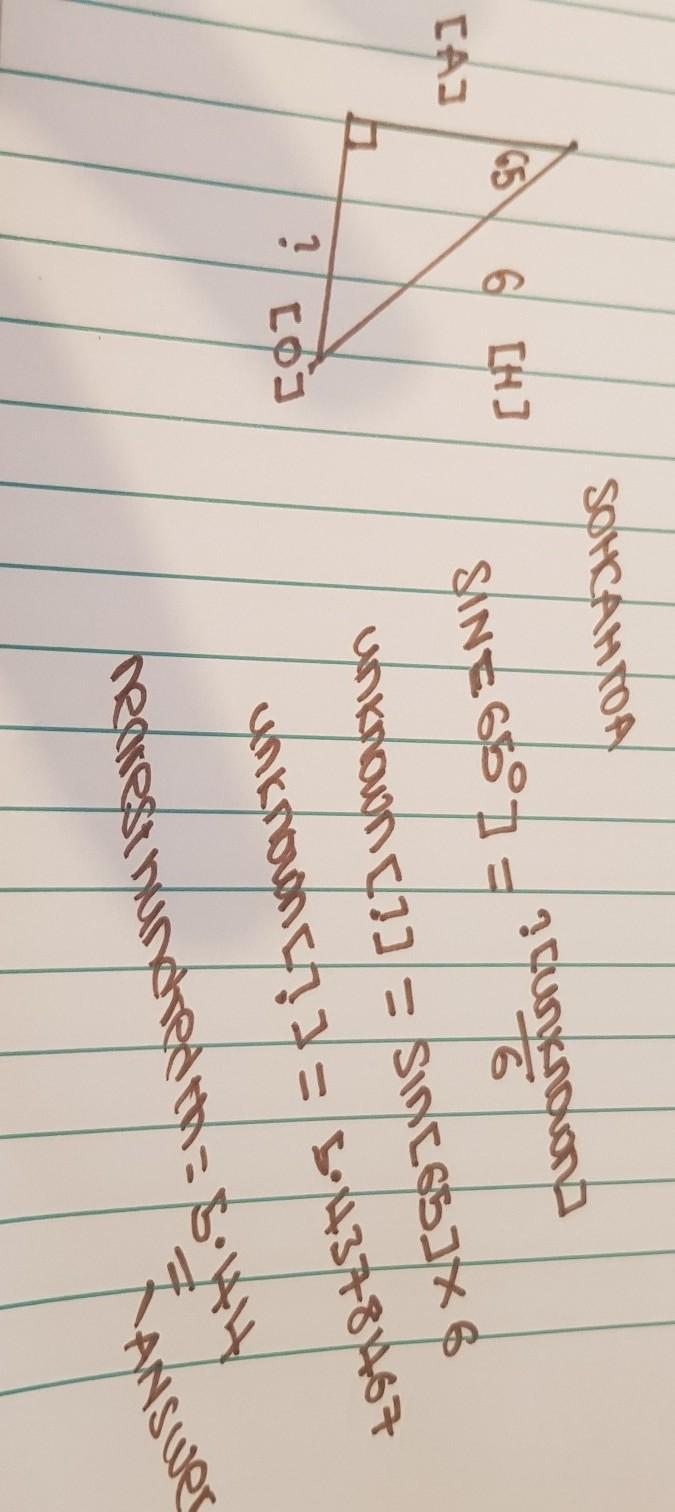 [A]
65
6 [H]
? [O]
SOHCAHTOA
SIN[65°] = ?[unknown]
6
unknown[?] = sin[65] × 6
unknown[?] = 5.4378467
nearest hundredth = 5.44
ANSWER